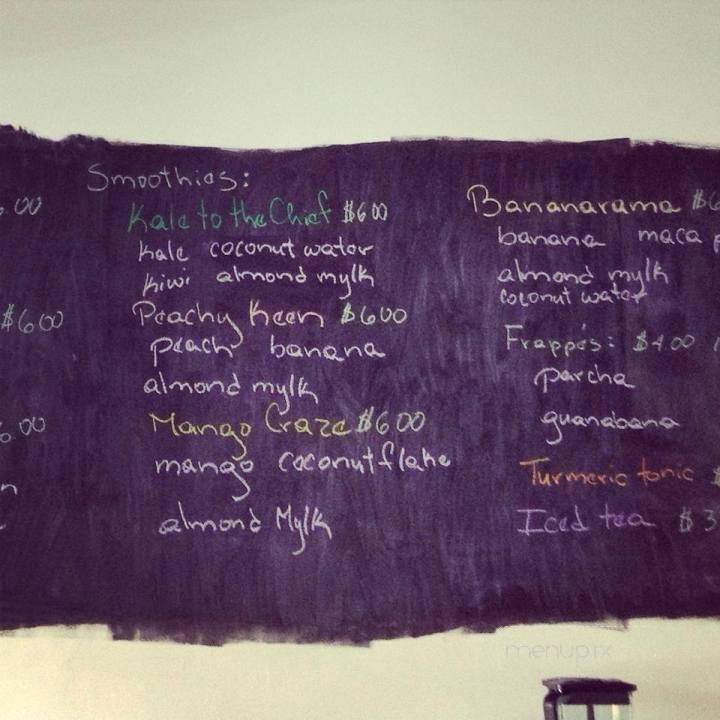 Smoothies:
Kale to the Chief $6.00
kale coconut water
kiwi almond mylk
Peachy Keen $6.00
peach banana
almond mylk
Mango Craze $6.00
mango coconut flake
almond Mylk
Bananarama $6
banana maca
almond mylk
coconut water
Frappés: $4.00
parcha
guanabana
Turmeric tonic $
Iced tea $3
.00
$6.00
.00
n
menupix